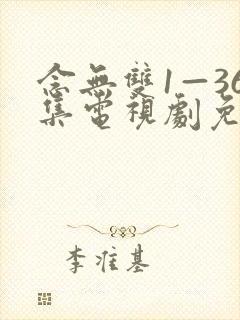 念無雙1—36
集電視劇免
李准基